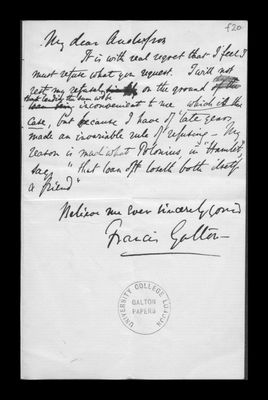 f20
My dear Anderson
It is with real regret that I feel I
must refuse what you request. I will not
rest my refusal on the ground
that lending the sum wd be
inconvenient to me which is the
case, but because I have of late years,
made an invariable rule of refusing – My
reason is much what Polonius, in "Hamlet,
says, "that loan oft loseth both itself &
a friend"
Believe me Ever Sincerely yours
Francis Galton
UNIVERSITY COLLEGE LONDON
GALTON
PAPERS